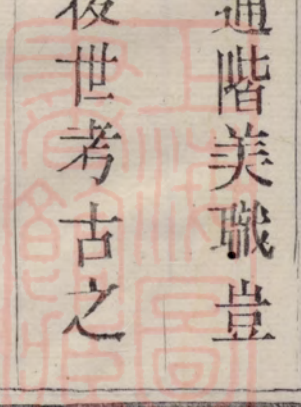 通階美職豈
後世考古之